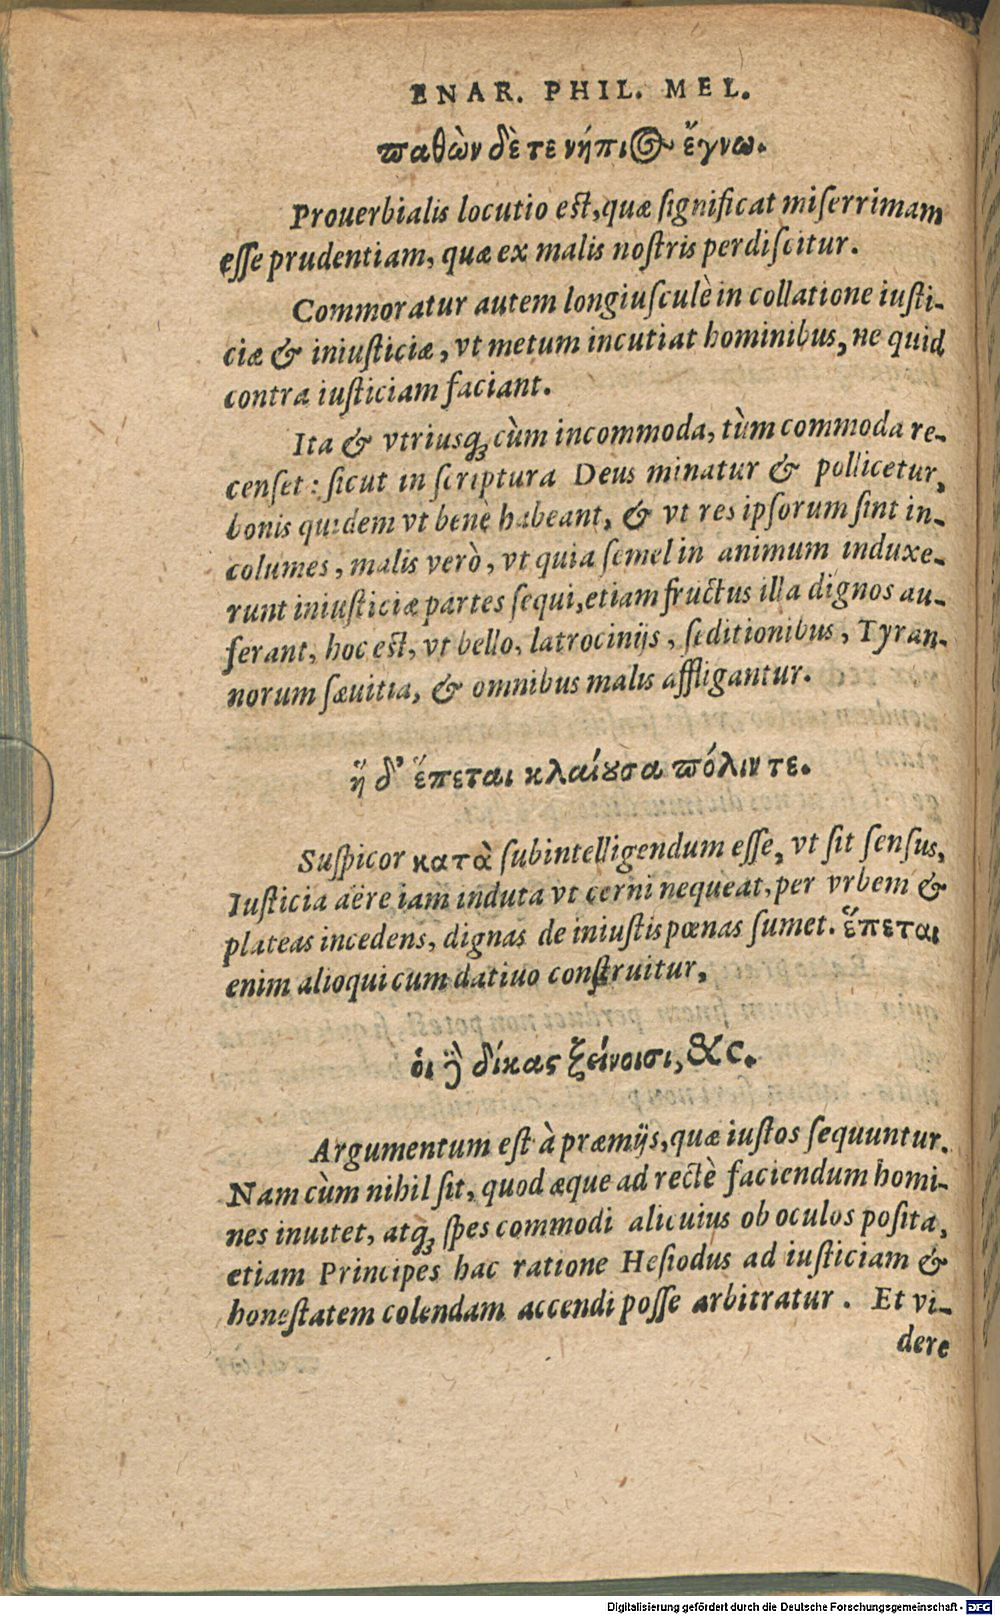 ENAR. PHIL. MEL.
παθὼν δὲ τε νήπιος ἔγνω.
Prouerbialis locutio est, quæ significat miserrimam
esse prudentiam, quæ ex malis nostris perdiscitur.
Commoratur autem longiusculè in collatione iusti-
ciæ & iniusticiæ, vt metum incutiat hominibus, ne quid
contra iusticiam faciant.
Ita & vtriusq; cùm incommoda, tùm commoda re-
censet: sicut in scriptura Deus minatur & pollicetur,
bonis quidem vt benè habeant, & vt res ipsorum sint in-
columes, malis verò, vt quia semel in animum induxe-
runt iniusticiæ partes sequi, etiam fructus illa dignos au-
ferant, hoc est, vt bello, latrocinijs, seditionibus, Tyran-
norum sæuitia, & omnibus malis affligantur.
ἥ δ' ἕπεται κλαίουσα πόλιν τε.
Suspicor κατὰ subintelligendum esse, vt sit sensus,
Iusticia aëre iam induta vt cerni nequeat, per vrbem &
plateas incedens, dignas de iniustis pœnas sumet. ἕπεται
enim alioqui cum datiuo construitur,
οἱ δὲ δίκας ξείνοισι, &c.
Argumentum est à præmijs, quæ iustos sequuntur.
Nam cùm nihil sit, quod æque ad rectè faciendum homi-
nes inuitet, atq; spes commodi alicuius ob oculos posita,
etiam Principes hac ratione Hesiodus ad iusticiam &
honestatem colendam accendi posse arbitratur. Et vi-
dere
Digitalisierung gefördert durch die Deutsche Forschungsgemeinschaft - DFG